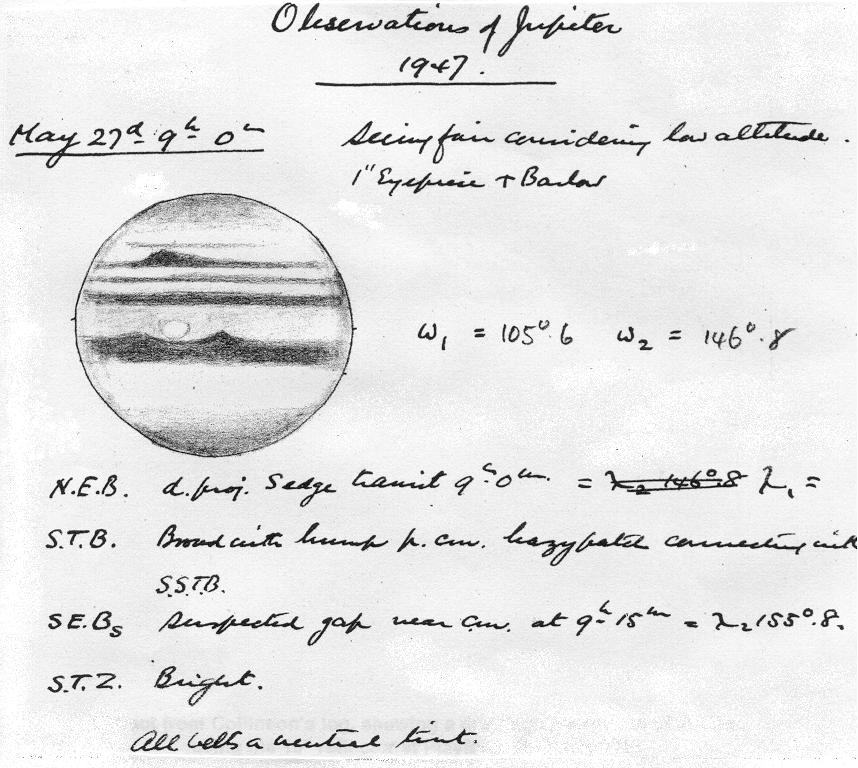 Observations of Jupiter
1947.
May 27d 9h 0m
Seeing fair considering low altitude.
1" Eyepiece + Barlow
ω1 = 105°.6 ω2 = 146°.8
N.E.B. d. proj. S edge transit 9h 0m. = λ2 146°.8 λ1 =
S.T.B. Broad with hump p. cm. hazy patch connecting with
S.S.T.B.
S.E.Bs Suspected gap near cm. at 9h 15m = λ2 155°.8.
S.T.Z. Bright.
All belts a neutral tint.